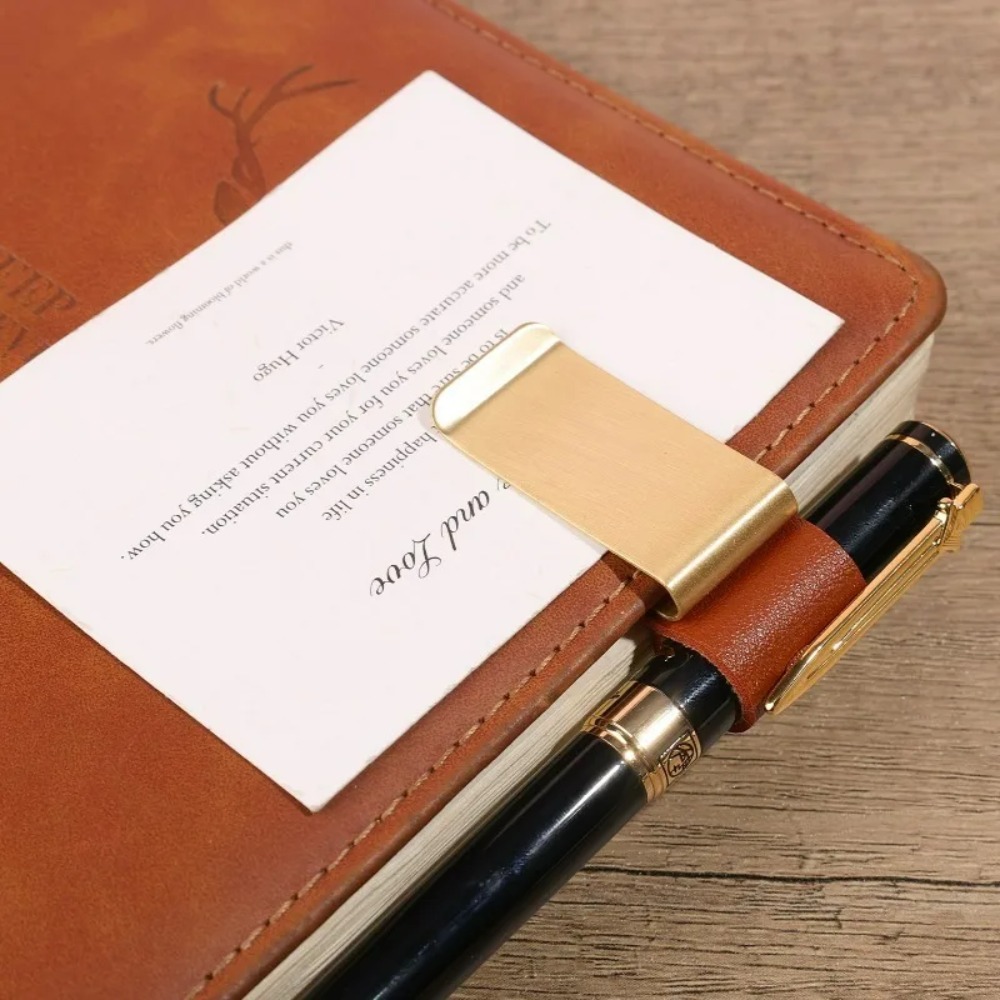 and Love
happiness in life
Is to be sure that someone loves you
and someone loves you for your current situation.
To be more accurate someone loves you without asking you how.
Victor Hugo
this is a world of blooming flowers